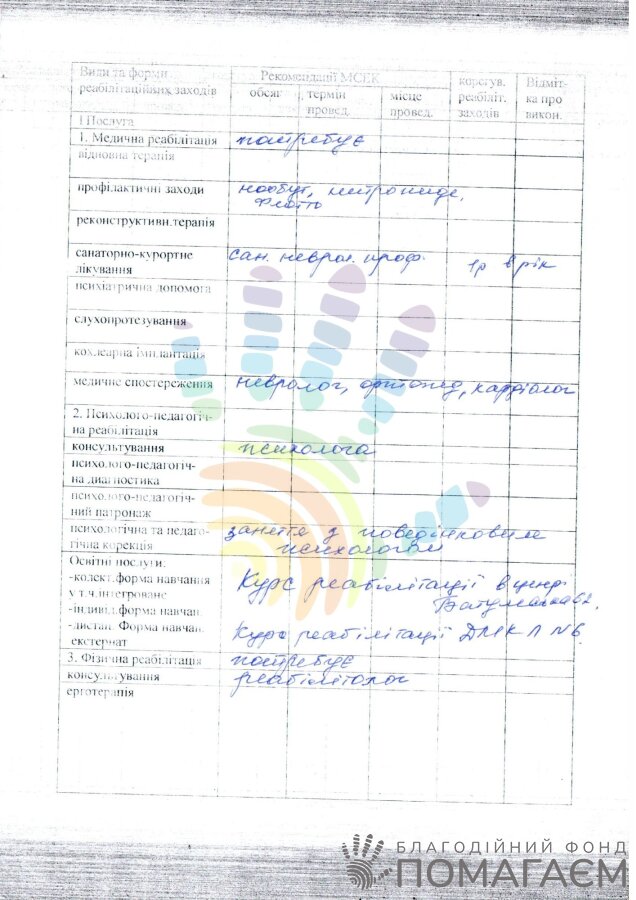 Види та форми реабілітаційних заходів
Рекомендації МСЕК
обсяг
термін провед.
місце провед.
корегув. реабіліт. заходів
Відміт-ка про викон.
І Послуга
1. Медична реабілітація потребує
відновна терапія
профілактичні заходи
реконструктивн.терапія
санаторно-курортне сан. неврол. проф. 1р в рік
лікування
психіатрична допомога
слухопротезування
кохлеарна імплантація
медичне спостереження невролог, ортопед, кардіолог
2. Психолого-педагогіч-
на реабілітація
консультування психолога
психолого-педагогіч-
на диагностика
психолого-педагогіч-
ний патронаж
психологічна та педаго- заняття з поведінковим
гічна корекція психологом
Освітні послуги:
-колект.форма навчання Курс реабілітації в центр
у т.ч.інтегроване
-індивід.форма навчан.
-дистан. Форма навчан. Курс реабілітації ДМКЛ №6
екстернат
3. Фізична реабілітація потребує
консультування реабілітолог
ерготерапія
БЛАГОДІЙНИЙ ФОНД
ПОМАГАЄМ